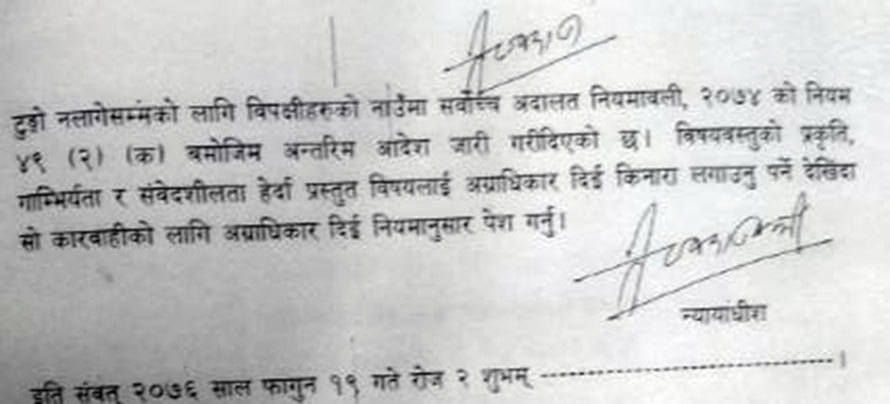 टुङ्गो नलागेसम्मको लागि विपक्षीहरुको नाउँमा सर्वोच्च अदालत नियमावली, २०७४ को नियम
४९ (२) (क) बमोजिम अन्तरिम आदेश जारी गरीदिएको छ। विषयवस्तुको प्रकृति,
गाम्भिर्यता र संवेदशीलता हेर्दा प्रस्तुत विषयलाई अग्राधिकार दिई किनारा लगाउनु पर्ने देखिदा
सो कारवाहीको लागि अग्राधिकार दिई नियमानुसार पेश गर्नु।
न्यायाधीश
इति संवत् २०७६ साल फागुन १९ गते रोज २ शुभम् ------------------------------।